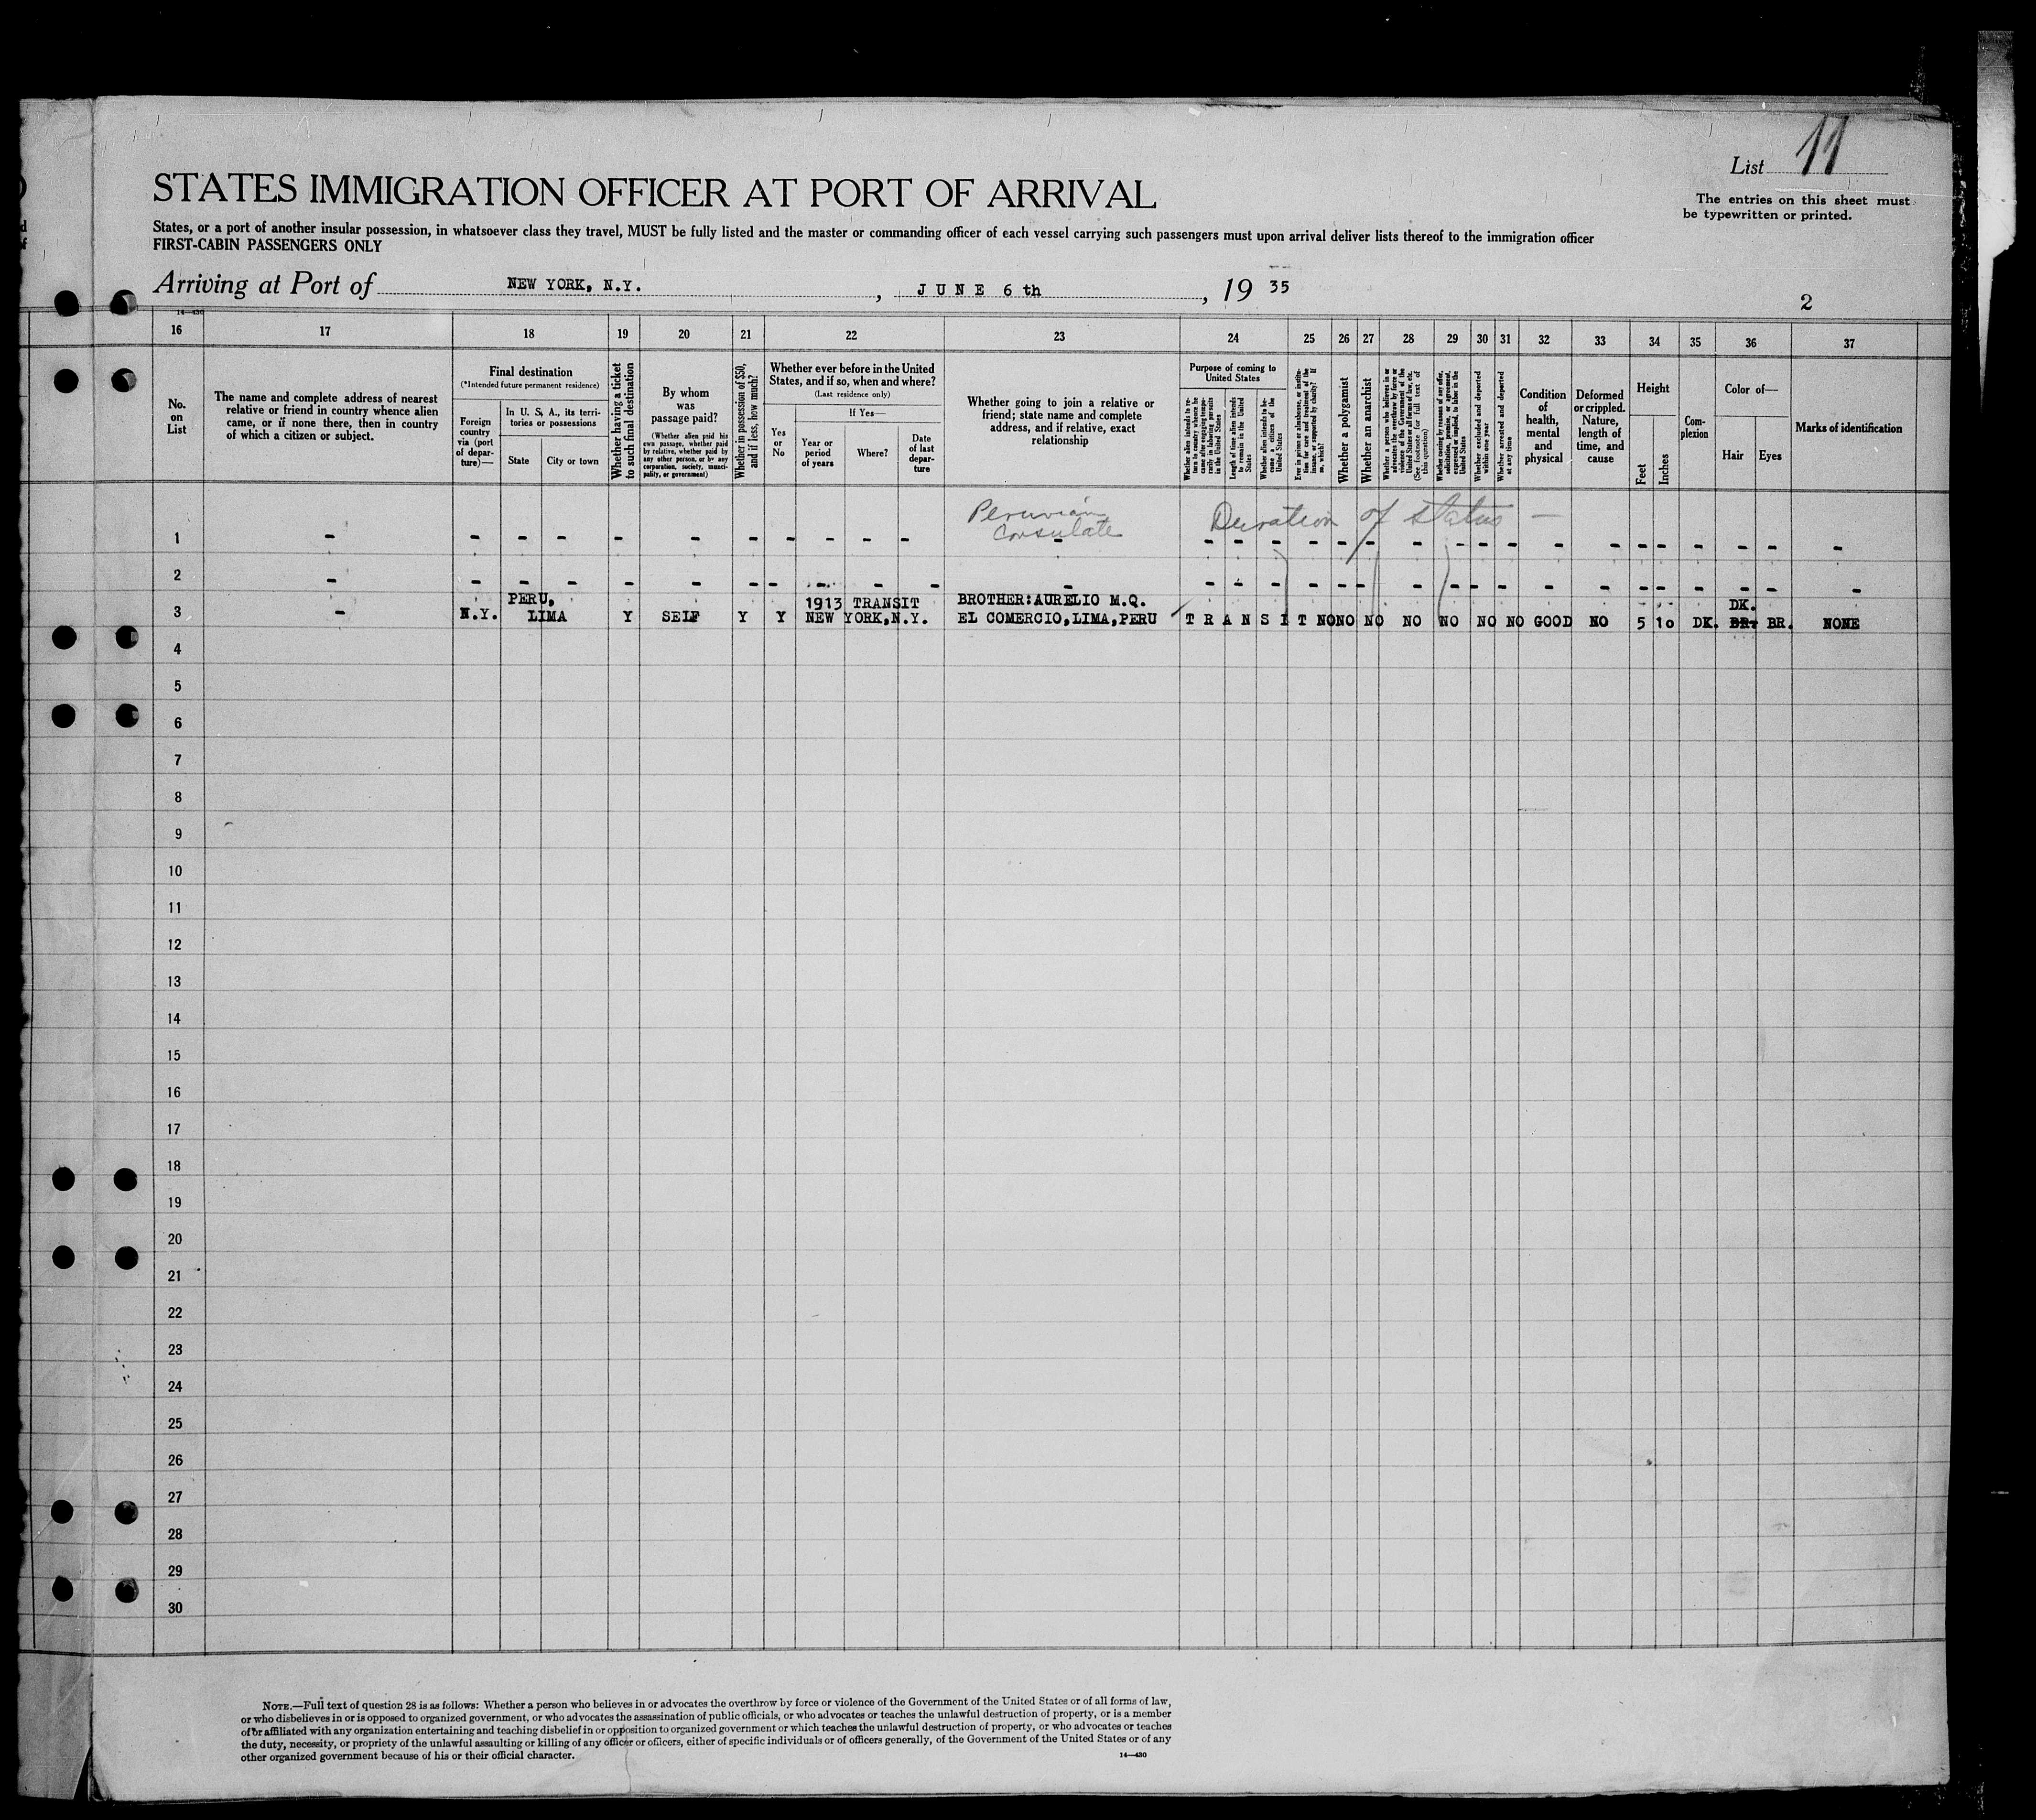 List 11
The entries on this sheet must
be typewritten or printed.
STATES IMMIGRATION OFFICER AT PORT OF ARRIVAL
States, or a port of another insular possession, in whatsoever class they travel, MUST be fully listed and the master or commanding officer of each vessel carrying such passengers must upon arrival deliver lists thereof to the immigration officer
FIRST-CABIN PASSENGERS ONLY
Arriving at Port of NEW YORK, N.Y. , JUNE 6 th , 19 35
2
14—430
16 17 18 19 20 21 22 23 24 25 26 27 28 29 30 31 32 33 34 35 36 37
No.
on
List
The name and complete address of nearest
relative or friend in country whence alien
came, or if none there, then in country
of which a citizen or subject.
Final destination
(*Intended future permanent residence)
Foreign
country
via (port
of depar-
ture)—
In U. S. A., its terri-
tories or possessions
State
City or town
Whether having a ticket
to such final destination
By whom
was
passage paid?
(Whether alien paid his
own passage, whether paid
by relative, whether paid by
any other person, or by any
corporation, society, munici-
pality, or government)
Whether in possession of $50,
and if less, how much?
Whether ever before in the United
States, and if so, when and where?
(Last residence only)
Yes
or
No
If Yes—
Year or
period
of years
Where?
Date
of last
depar-
ture
Whether going to join a relative or
friend; state name and complete
address, and if relative, exact
relationship
Purpose of coming to
United States
Whether alien intends to re-
turn to country whence he
came after engaging tempo-
rarily in laboring pursuits
in the United States
Length of time alien intends
to remain in the United
States
Whether alien intends to be-
come a citizen of the
United States
Ever in prison or almshouse, or institu-
tion for care and treatment of the
insane, or supported by charity? If
so, which?
Whether a polygamist
Whether an anarchist
Whether a person who believes in or
advocates the overthrow by force or
violence of the Government of the
United States or all forms of law, etc.
(See footnote for full text of
this question)
Whether coming by reasons of any offer,
solicitation, promise, or agreement,
expressed or implied, to labor in the
United States
Whether excluded and deported
within one year
Whether arrested and deported
at any time
Condition
of
health,
mental
and
physical
Deformed
or crippled.
Nature,
length of
time, and
cause
Height
Feet
Inches
Com-
plexion
Color of—
Hair
Eyes
Marks of identification
Peruvian
Consulate
Duration of status —
1 - - - - - - - - - - - - - - - - - - - - - - - - - - - -
2 - - - - - - - - - - - - - - - - - - - - - - - - - - - -
PERU, 1913 TRANSIT BROTHER:AURELIO M.Q. DK.
3 - N.Y. LIMA Y SELF Y Y NEW YORK,N.Y. EL COMERCIO,LIMA,PERU T R A N S I T NO NO NO NO NO NO NO GOOD NO 5 10 DK. BR. BR. NONE
4
5
6
7
8
9
10
11
12
13
14
15
16
17
18
19
20
21
22
23
24
25
26
27
28
29
30
NOTE.—Full text of question 28 is as follows: Whether a person who believes in or advocates the overthrow by force or violence of the Government of the United States or of all forms of law,
or who disbelieves in or is opposed to organized government, or who advocates the assassination of public officials, or who advocates or teaches the unlawful destruction of property, or is a member
of or affiliated with any organization entertaining and teaching disbelief in or opposition to organized government or which teaches the unlawful destruction of property, or who advocates or teaches
the duty, necessity, or propriety of the unlawful assaulting or killing of any officer or officers, either of specific individuals or of officers generally, of the Government of the United States or of any
other organized government because of his or their official character.
14—430